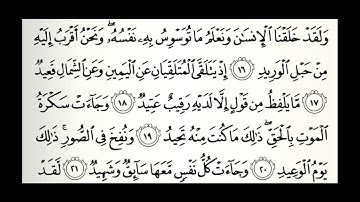 وَلَقَدْ خَلَقْنَا ٱلْإِنسَـٰنَ وَنَعْلَمُ مَا تُوَسْوِسُ بِهِۦ نَفْسُهُۥ ۖ وَنَحْنُ أَقْرَبُ إِلَيْهِ
مِنْ حَبْلِ ٱلْوَرِيدِ ١٦ إِذْ يَتَلَقَّى ٱلْمُتَلَقِّيَانِ عَنِ ٱلْيَمِينِ وَعَنِ ٱلشِّمَالِ قَعِيدٌ
١٧ مَّا يَلْفِظُ مِن قَوْلٍ إِلَّا لَدَيْهِ رَقِيبٌ عَتِيدٌ ١٨ وَجَآءَتْ سَكْرَةُ
ٱلْمَوْتِ بِٱلْحَقِّ ۖ ذَٰلِكَ مَا كُنتَ مِنْهُ تَحِيدُ ١٩ وَنُفِخَ فِى ٱلصُّورِ ۚ ذَٰلِكَ
يَوْمُ ٱلْوَعِيدِ ٢٠ وَجَآءَتْ كُلُّ نَفْسٍ مَّعَهَا سَآئِقٌ وَشَهِيدٌ ٢١ لَّقَدْ